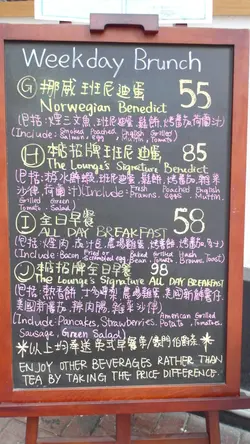 Weekday Brunch
G 挪威班尼迪蛋 55
Norwegian Benedict
(包括:煙三文魚,班尼廸蛋,鬆餅,烤蕃茄,荷蘭汁)
(Include: Smoked Salmon, Poached egg, English Muffin, Grilled Tomato)
H 本店招牌班尼迪蛋 85
The Lounge's Signature Benedict
(Include: Fresh Prawns, Poached eggs, English Muffin, Grilled Tomato, Green Salad)
I 全日早餐 58
ALL DAY BREAKFAST
(Include: Bacon, Fried or Scrambled egg, Baked Bean, Grilled Tomato, Hash Browns, Toast)
J 本店招牌全日早餐 98
The Lounge's Signature ALL DAY BREAKFAST
(Include: Pancakes, Strawberries, American Potato, Grilled Tomatoes, Sausage, Green Salad)
ENJOY OTHER BEVERAGES RATHER THAN
TEA BY TAKING THE PRICE DIFFERENCE